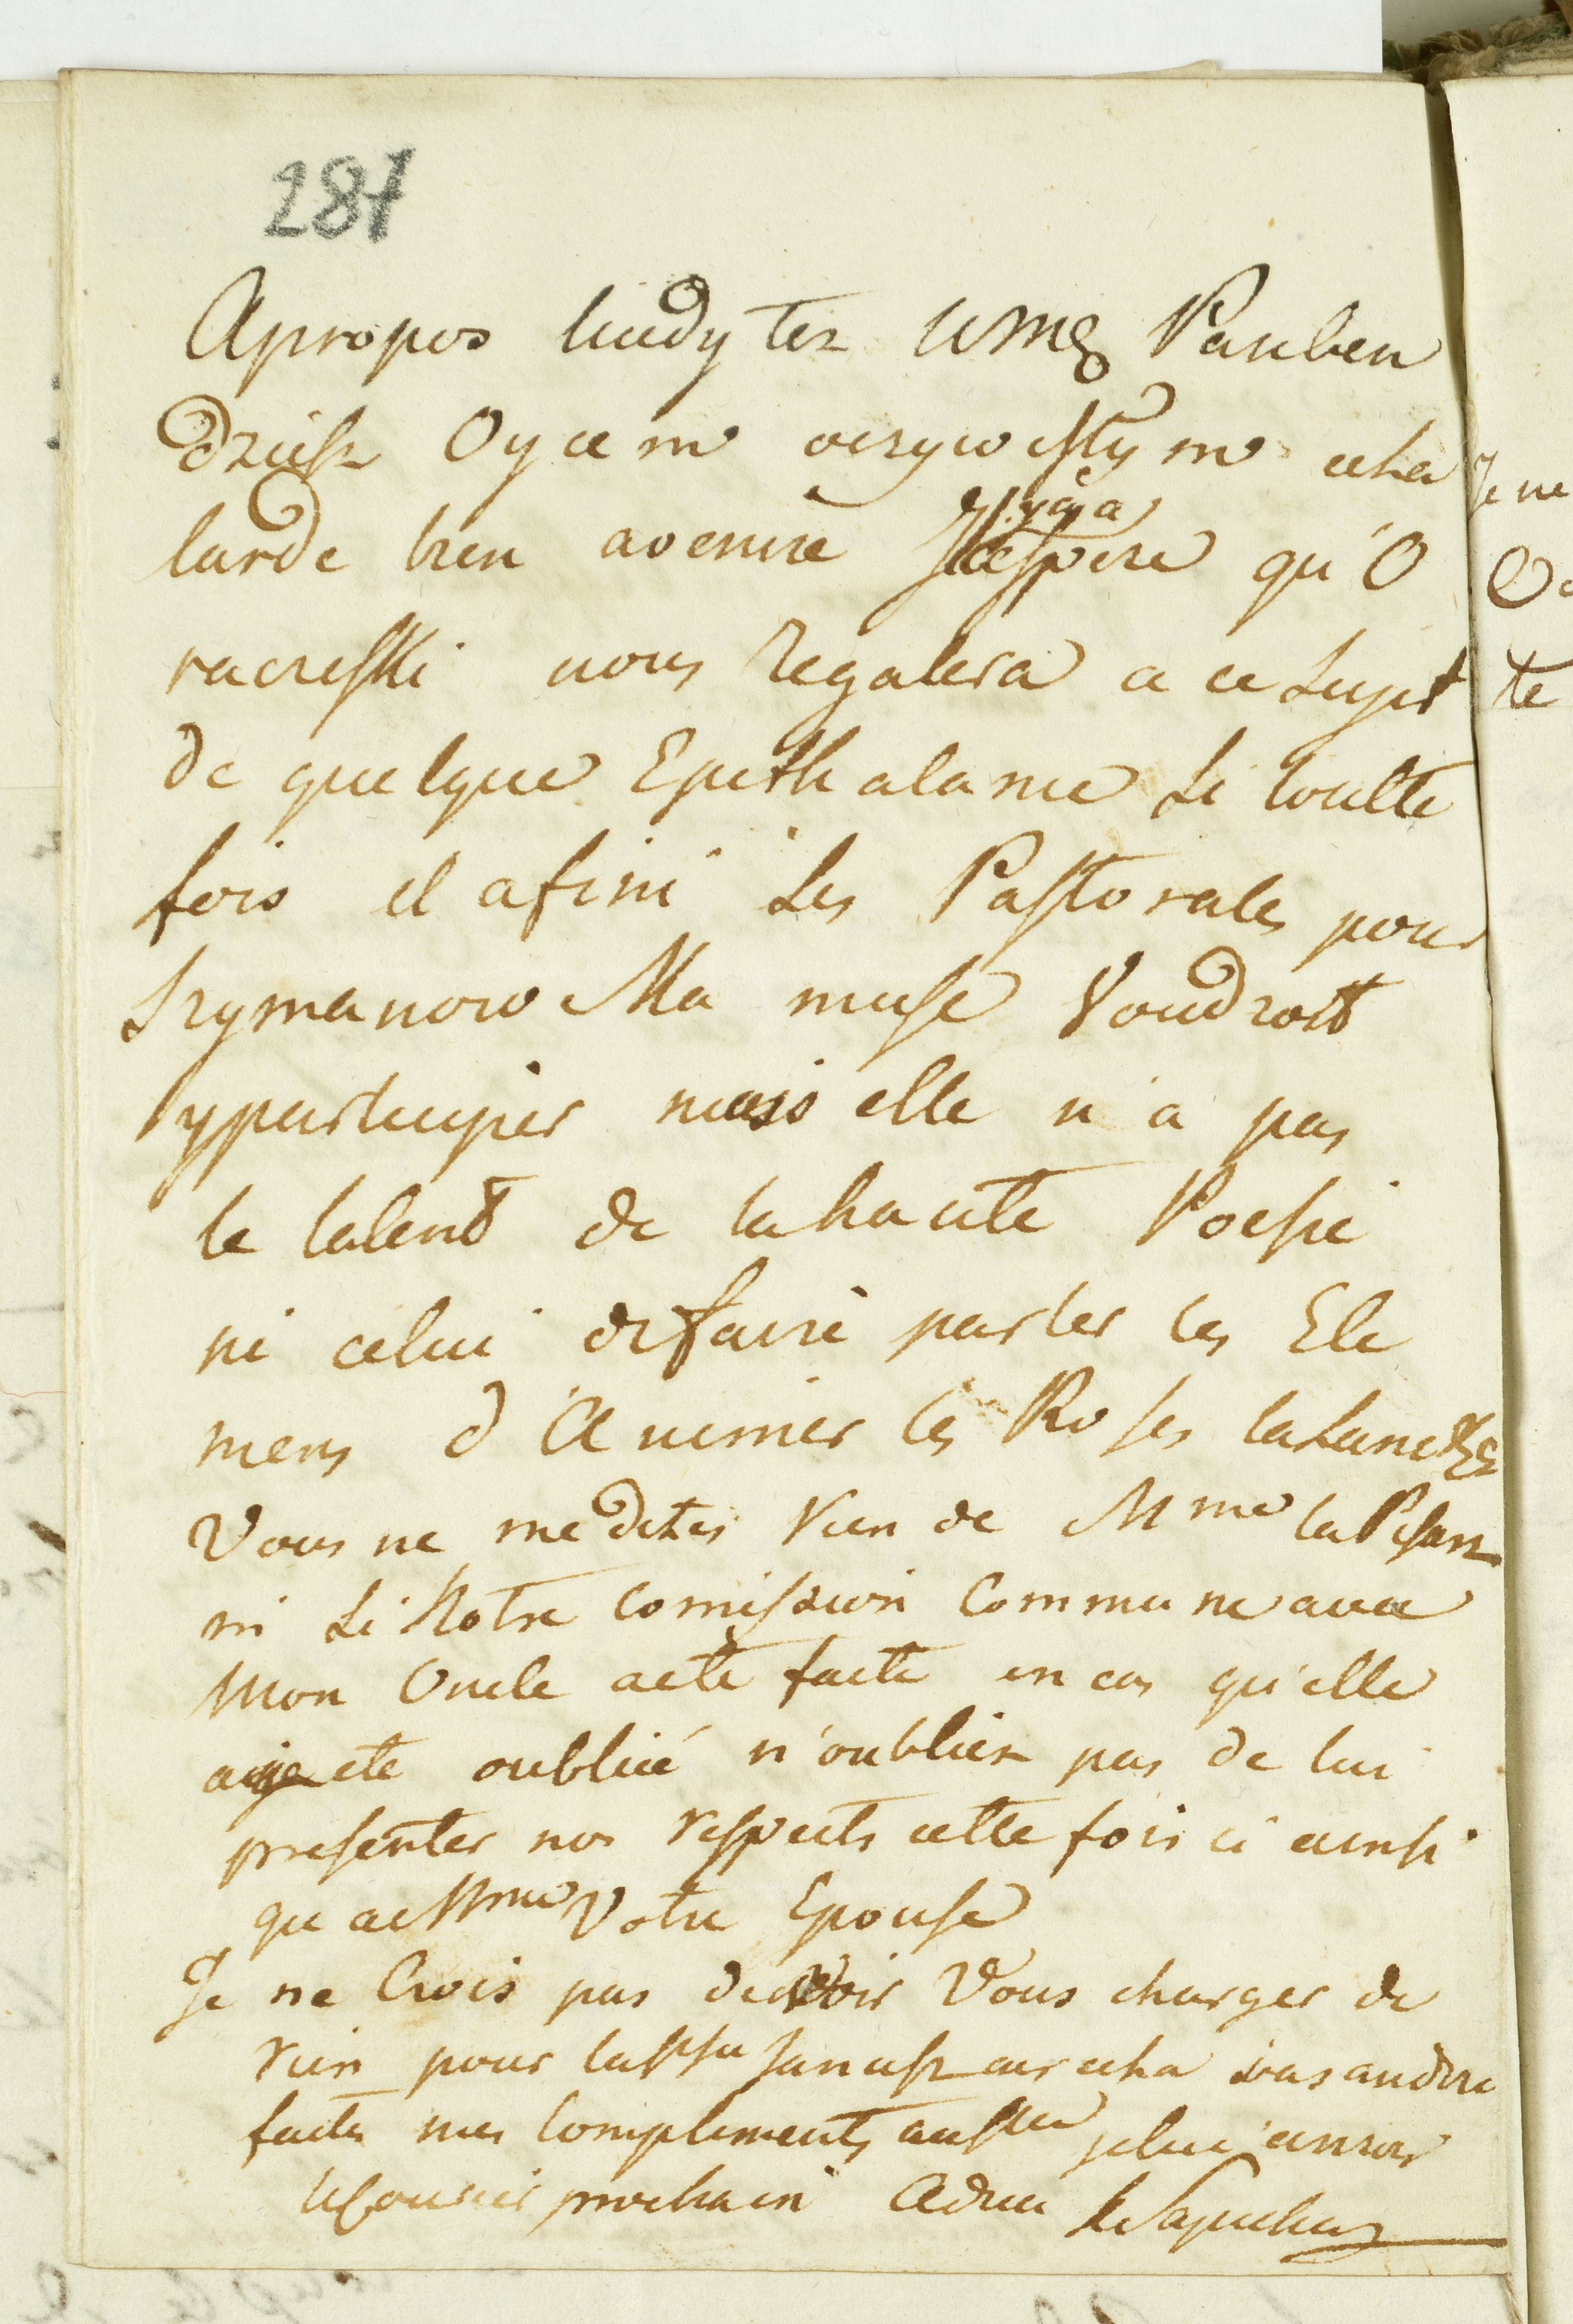 287
Apropos kiedyTez WMę Panben
dziesz Oycem oczywistym ceha
larde bien avenire J'espere qu'O
raczeski nous Regalera a ce Sujet
de quelque Epithalame Si toutte
fois il afini Ses Pastorales pour
Szymanow Ma muse Voudroit
yparticiper mais elle n'a pas
le talent de la haute Poesie
ni celui defaire parler les Ele
mens d'Animer les Roses laLune &
Vous ne me dites rien de Mme la
ni Si Notre comission Commune avec
Mon Oncle aeté faite en cas qu'elle
aye ete oublié n'oubliez pas de lui
presenter nos respects cette fois ci ainsi
que a Mme Votre Epouse
Je ne Crois pas devoir Vous charger de
rien pour
faites mes Complements
leCourier prochain Adieu KSapieha
Je ne
te